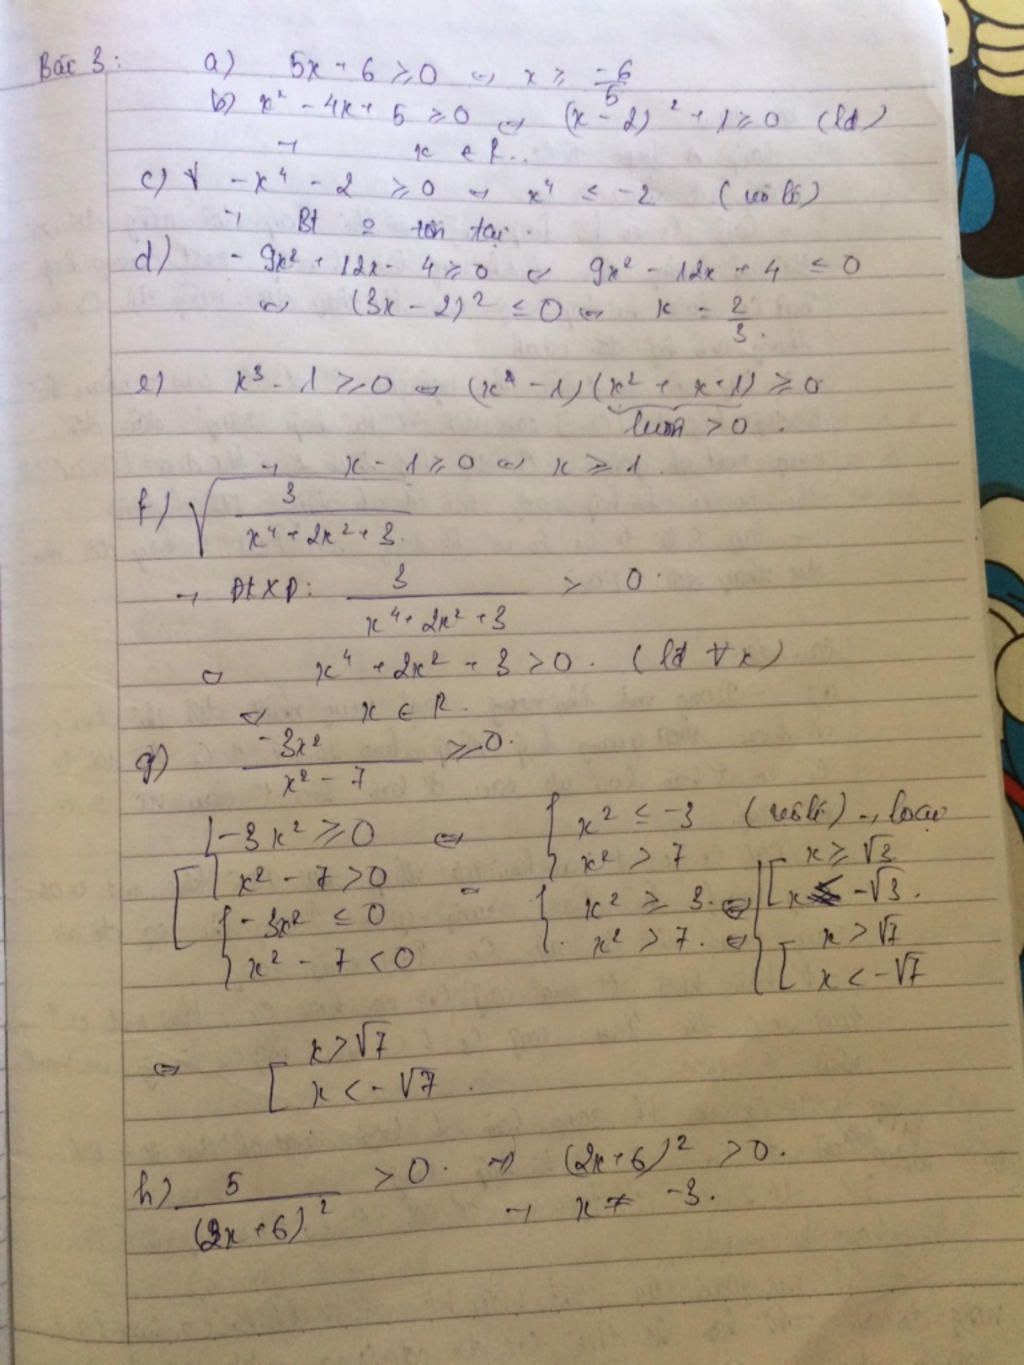 Bài 3: a) 5x + 6 ≥ 0 ⇔ x ≥ -6/5
b) x² - 4x + 5 ≥ 0 ⇔ (x - 2)² + 1 ≥ 0 (lđ)
→ x ∈ R..
c) -x⁴ - 2 ≥ 0 ⇔ x⁴ ≤ -2 (vô lí)
→ Bt o tồn tại.
d) - 9x² + 12x - 4 ≥ 0 ⇔ 9x² - 12x + 4 ≤ 0
⇔ (3x - 2)² ≤ 0 ⇔ x = 2/3.
e) x³ - 1 ≥ 0 ⇔ (x - 1)(x² + x + 1) ≥ 0
luôn > 0.
→ x - 1 ≥ 0 ⇔ x ≥ 1.
f) √(3/(x⁴ + 2x² + 3))
→ ĐKXĐ: 3/(x⁴ + 2x² + 3) > 0.
⇔ x⁴ + 2x² + 3 > 0. (lđ ∀x)
⇔ x ∈ R.
g) -3x²/(x² - 7) ≥ 0.
[ { -3x² ≥ 0 ⇔ { x² ≤ -3 (vô lí) → loại
x² - 7 > 0 x² > 7
{ -3x² ≤ 0 { x² ≥ 3. ⇔ { [ x ≥ √3
x ≤ -√3.
x² - 7 < 0 x² > 7. ⇔ [ x > √7
x < -√7
⇔ [ x > √7
x < -√7.
h) 5/(2x + 6)² > 0. ⇒ (2x + 6)² > 0.
→ x ≠ -3.